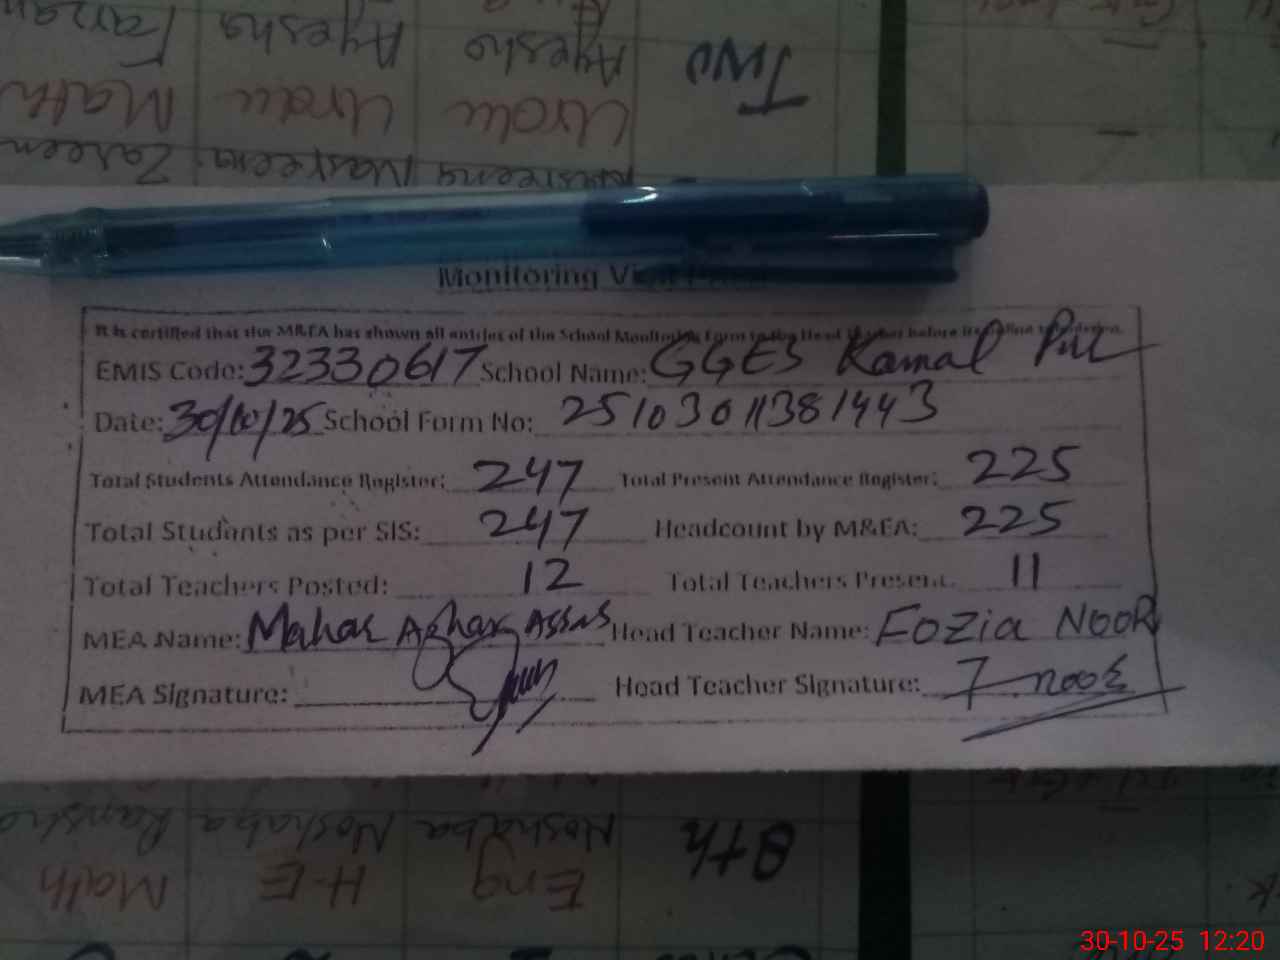 Two
Ayesha Ayesha Farzan
Urdu Urdu Math
Nasreena Nasreena Zareen
Monitoring
It is certified that the M&EA has shown all entries of the School Monitoring Form to the Head Teacher before its online submission.
EMIS Code: 32330617 School Name: GGES Kamal Pur
Date: 30/10/25 School Form No: 25103011381443
Total Students Attendance Register: 247 Total Present Attendance Register: 225
Total Students as per SIS: 247 Headcount by M&EA: 225
Total Teachers Posted: 12 Total Teachers Present. 11
MEA Name: Mahar Azhar Abbas Head Teacher Name: Fozia NOOR
MEA Signature: Head Teacher Signature: F noor
8th Noshaba Noshaba
Eng H-E Math
30-10-25 12:20